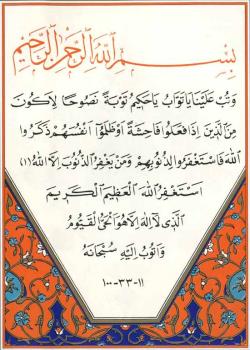 بِسْمِ اللهِ الرَّحْمٰنِ الرَّحِيْمِ
وَتُبْ عَلَيْنَا يَا تَوَّابُ يَا حَكِيْمُ تَوْبَةً نَصُوْحًا لِاَكُوْنَ
مِنَ الَّذِيْنَ اِذَا فَعَلُوْا فَاحِشَةً اَوْ ظَلَمُوْا اَنْفُسَهُمْ ذَكَرُوا
اللهَ فَاسْتَغْفَرُوا لِذُنُوْبِهِمْ وَمَنْ يَغْفِرُ الذُّنُوْبَ اِلَّا اللهُ (١)
اَسْتَغْفِرُ اللهَ الْعَظِيْمَ الْكَرِيْمَ
الَّذِى لَا اِلٰهَ اِلَّا هُوَ الْحَىُّ الْقَيُّوْمُ
وَاَتُوْبُ اِلَيْهِ سُبْحَانَهُ
١١-٣٣-١٠٠